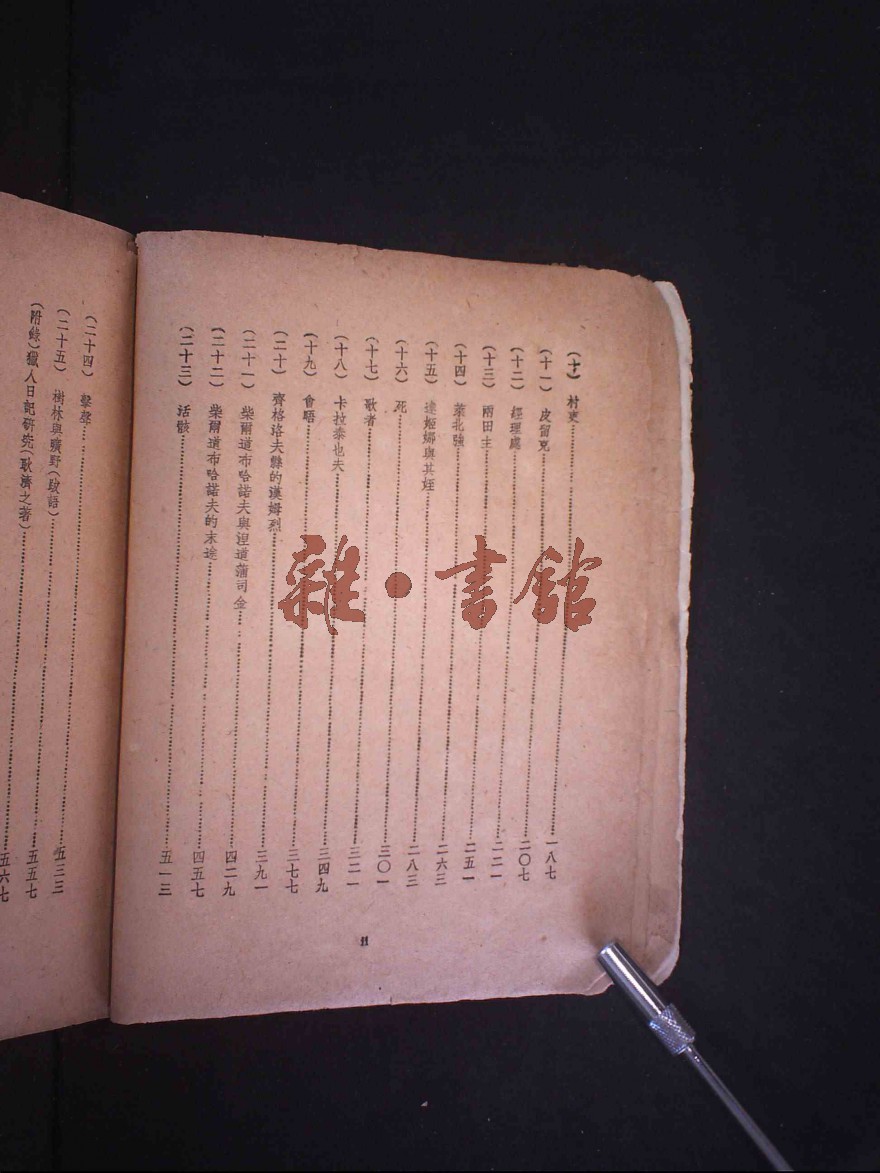 (十) 村吏……一八七
(十一) 皮留克……二〇七
(十二) 經理處……二二一
(十三) 兩田主……二五一
(十四) 萊北強……二六三
(十五) 達姬娜與其姪……二八三
(十六) 死……三〇一
(十七) 歌者……三二一
(十八) 卡拉泰也夫……三四九
(十九) 會晤……三七七
(二十) 齊格洛夫縣的漢姆烈……三九一
(二十一) 柴爾道布哈諾夫與湼道蒲司金……四二九
(二十二) 柴爾道布哈諾夫的末途……四五七
(二十三) 活骸……五一三
(二十四) 擊聲……五三三
(二十五) 樹林與曠野(跋語)……五五七
(附錄) 獵人日記研究(耿濟之著)……五六七
雜·書館